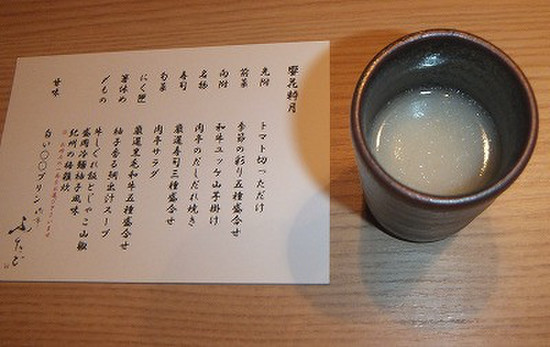 櫻花粋月
先附 トマト切っただけ
前菜 季節の彩り五種盛合せ
向附 和牛ユッケ山芋掛け
名物 肉亭のだしだれ焼き
寿司 厳選寿司三種盛合せ
旬菜 肉亭サラダ
にく匣 厳選黒毛和牛五種盛合せ
箸休め 柚子香る調出汁スープ
〆もの 牛しぐれ飯とじゃこ山椒
盛岡冷麺柚子風味
紀州の梅雑炊
甘味 白い〇〇プリン